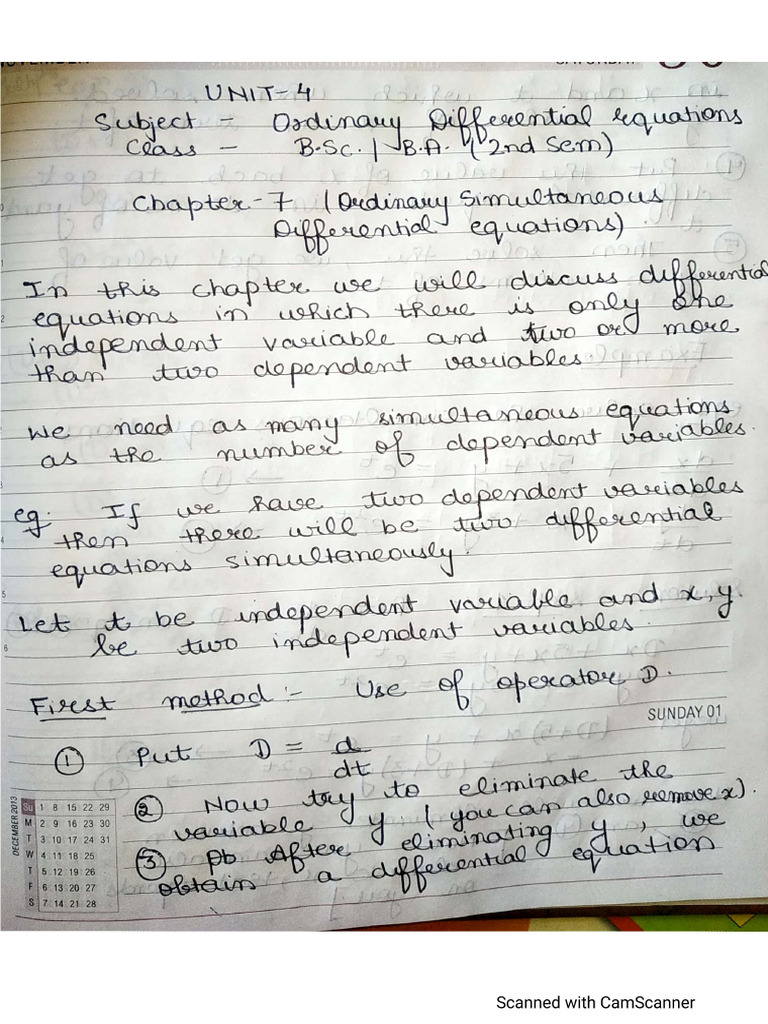 UNIT-4
Subject - Ordinary Differential equations
Class - B.Sc. | B.A. (2nd Sem)
Chapter-7 (Ordinary Simultaneous
Differential equations).
In this chapter we will discuss differential
equations in which there is only one
independent variable and two or more
than two dependent variables.
We need as many simultaneous equations
as the number of dependent variables.
eg. If we have two dependent variables
then there will be two differential
equations simultaneously.
Let t be independent variable and x, y.
be two independent variables.
First method:- Use of operator D.
SUNDAY 01
① Put D = d/dt
② Now try to eliminate the
variable y (you can also remove x).
③ After eliminating y, we
obtain a differential equation
DECEMBER 2013
Su 1 8 15 22 29
M 2 9 16 23 30
T 3 10 17 24 31
W 4 11 18 25
T 5 12 19 26
F 6 13 20 27
S 7 14 21 28
Scanned with CamScanner